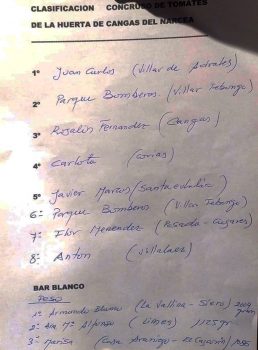 CLASIFICACION CONCRUSO DE TOMATES
DE LA HUERTA DE CANGAS DEL NARCEA
1º Juan Carlos (Villar de Adrales)
2º Parque Bomberos (Villar Tabongo)
3º Rosalin Fernandez (Cangas)
4º Carlota (Corias)
5º Javier Marcos (Santa eulalia)
6º Parque Bomberos (Villar Tabongo)
7º Flor Menendez (
8º Anton (Villalaez)
BAR BLANCO
PESO
1º Armando Blanco (La Vallina - Siero)
2º Ana Mª Alfonso (Limes) 1125 gr
3º Marisa (Casa